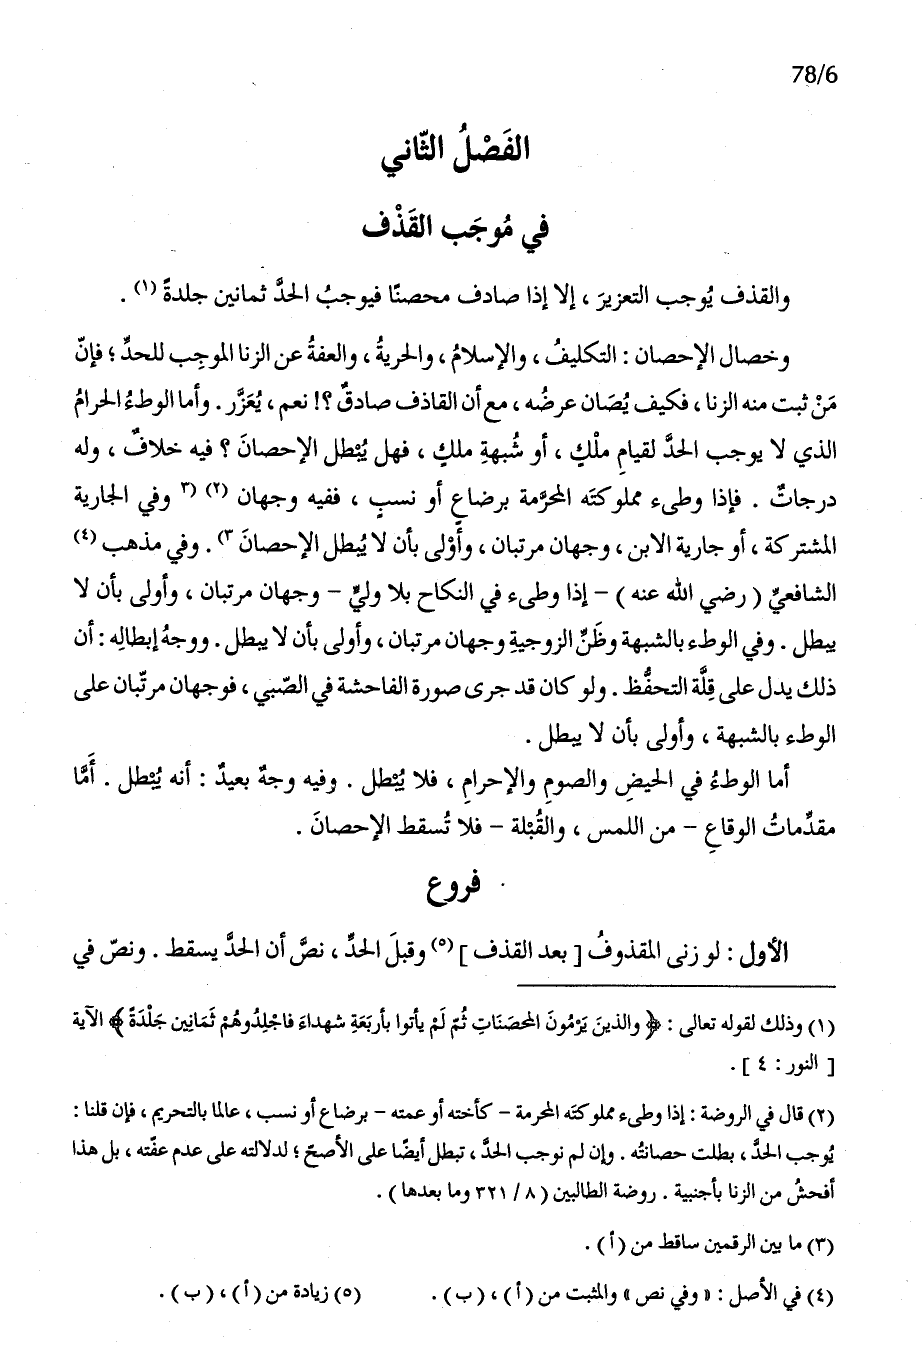 78/6
الفَصْلُ الثّاني
في مُوجَب القَذْف
والقذف يُوجب التعزيرَ ، إلا إذا صادف محصنًا فيوجبُ الحدَّ ثمانين جلدةً (١) .
وخصال الإحصان : التكليفُ ، والإسلامُ ، والحريةُ ، والعفةُ عن الزنا الموجِب للحدِّ ؛ فإنّ
مَنْ ثبت منه الزنا ، فكيف يُصَان عرضُه ، مع أن القاذف صادقٌ ؟! نعم ، يُعَزَّر . وأما الوطءُ الحرامُ
الذي لا يوجب الحدَّ لقيامِ ملْكٍ ، أو شُبهةِ ملكٍ ، فهل يُبْطل الإحصانَ ؟ فيه خلافٌ ، وله
درجاتٌ . فإذا وطىء مملوكتَه المحرَّمة برضاعٍ أو نسبٍ ، ففيه وجهان (٢) (٣ وفي الجارية
المشتركة ، أو جارية الابن ، وجهان مرتبان ، وأَوْلى بأن لا يُبطل الإحصانَ ٣) . وفي مذهب (٤)
الشافعيِّ ( رضي الله عنه ) - إذا وطىء في النكاح بلا وليٍّ - وجهان مرتبان ، وأولى بأن لا
يبطل . وفي الوطء بالشبهة وظَنِّ الزوجيةِ وجهان مرتبان ، وأولى بأن لا يبطل . ووجهُ إبطالِه : أن
ذلك يدل على قِلَّة التحفُّظ . ولو كان قد جرى صورة الفاحشة في الصّبي ، فوجهان مرتّبان على
الوطء بالشبهة ، وأولى بأن لا يبطل .
أما الوطءُ في الحيضِ والصومِ والإحرامِ ، فلا يُبْطل . وفيه وجهٌ بعيدٌ : أنه يُبْطل . أَمَّا
مقدِّماتُ الوقاعِ - من اللمس ، والقُبْلة - فلا تُسقط الإحصانَ .
فروع
الأول : لو زنى المقذوفُ [ بعد القذف ] (٥) وقبلَ الحدِّ ، نصَّ أن الحدَّ يسقط . ونصّ في
(١) وذلك لقوله تعالى : ﴿ والذينَ يَرْمُونَ المحصَنَاتِ ثُمّ لَمْ يأتوا بأربَعَةِ شهداءَ فاجْلِدُوهُمْ ثَمَانِين جَلْدَةً ﴾ الآية
[ النور : ٤ ] .
(٢) قال في الروضة : إذا وطىء مملوكتَه المحرمة - كأخته أو عمته - برضاع أو نسب ، عالمًا بالتحريم ، فإن قلنا :
يُوجب الحدَّ ، بطلت حصانتُه . وإن لم نوجب الحدَّ ، تبطل أيضًا على الأصحّ ؛ لدلالته على عدم عفّته ، بل هذا
أفحشُ من الزنا بأجنبية . روضة الطالبين ( ٨ / ٣٢١ وما بعدها ) .
(٣) ما بين الرقمين ساقط من ( أ ) .
(٤) في الأصل : « وفي نص » والمثبت من ( أ ) ، ( ب ) . (٥) زيادة من ( أ ) ، ( ب ) .